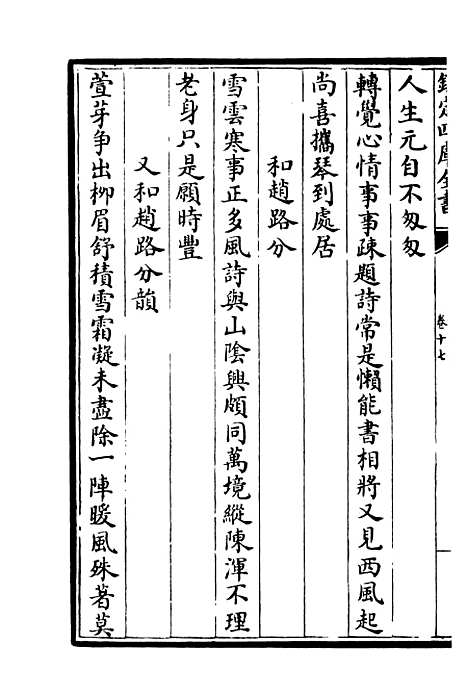 欽定四庫全書
卷十七
人生元自不匆匆
轉覺心情事事疎題詩常是懶能書相將又見西風起
尚喜攜琴到處居
和趙路分
雪雲寒事正多風詩與山陰興頗同萬境縱陳渾不理
老身只是願時豐
又和趙路分韻
萱芽争出栁眉舒積雪霜凝未盡除一陣暖風殊著莫